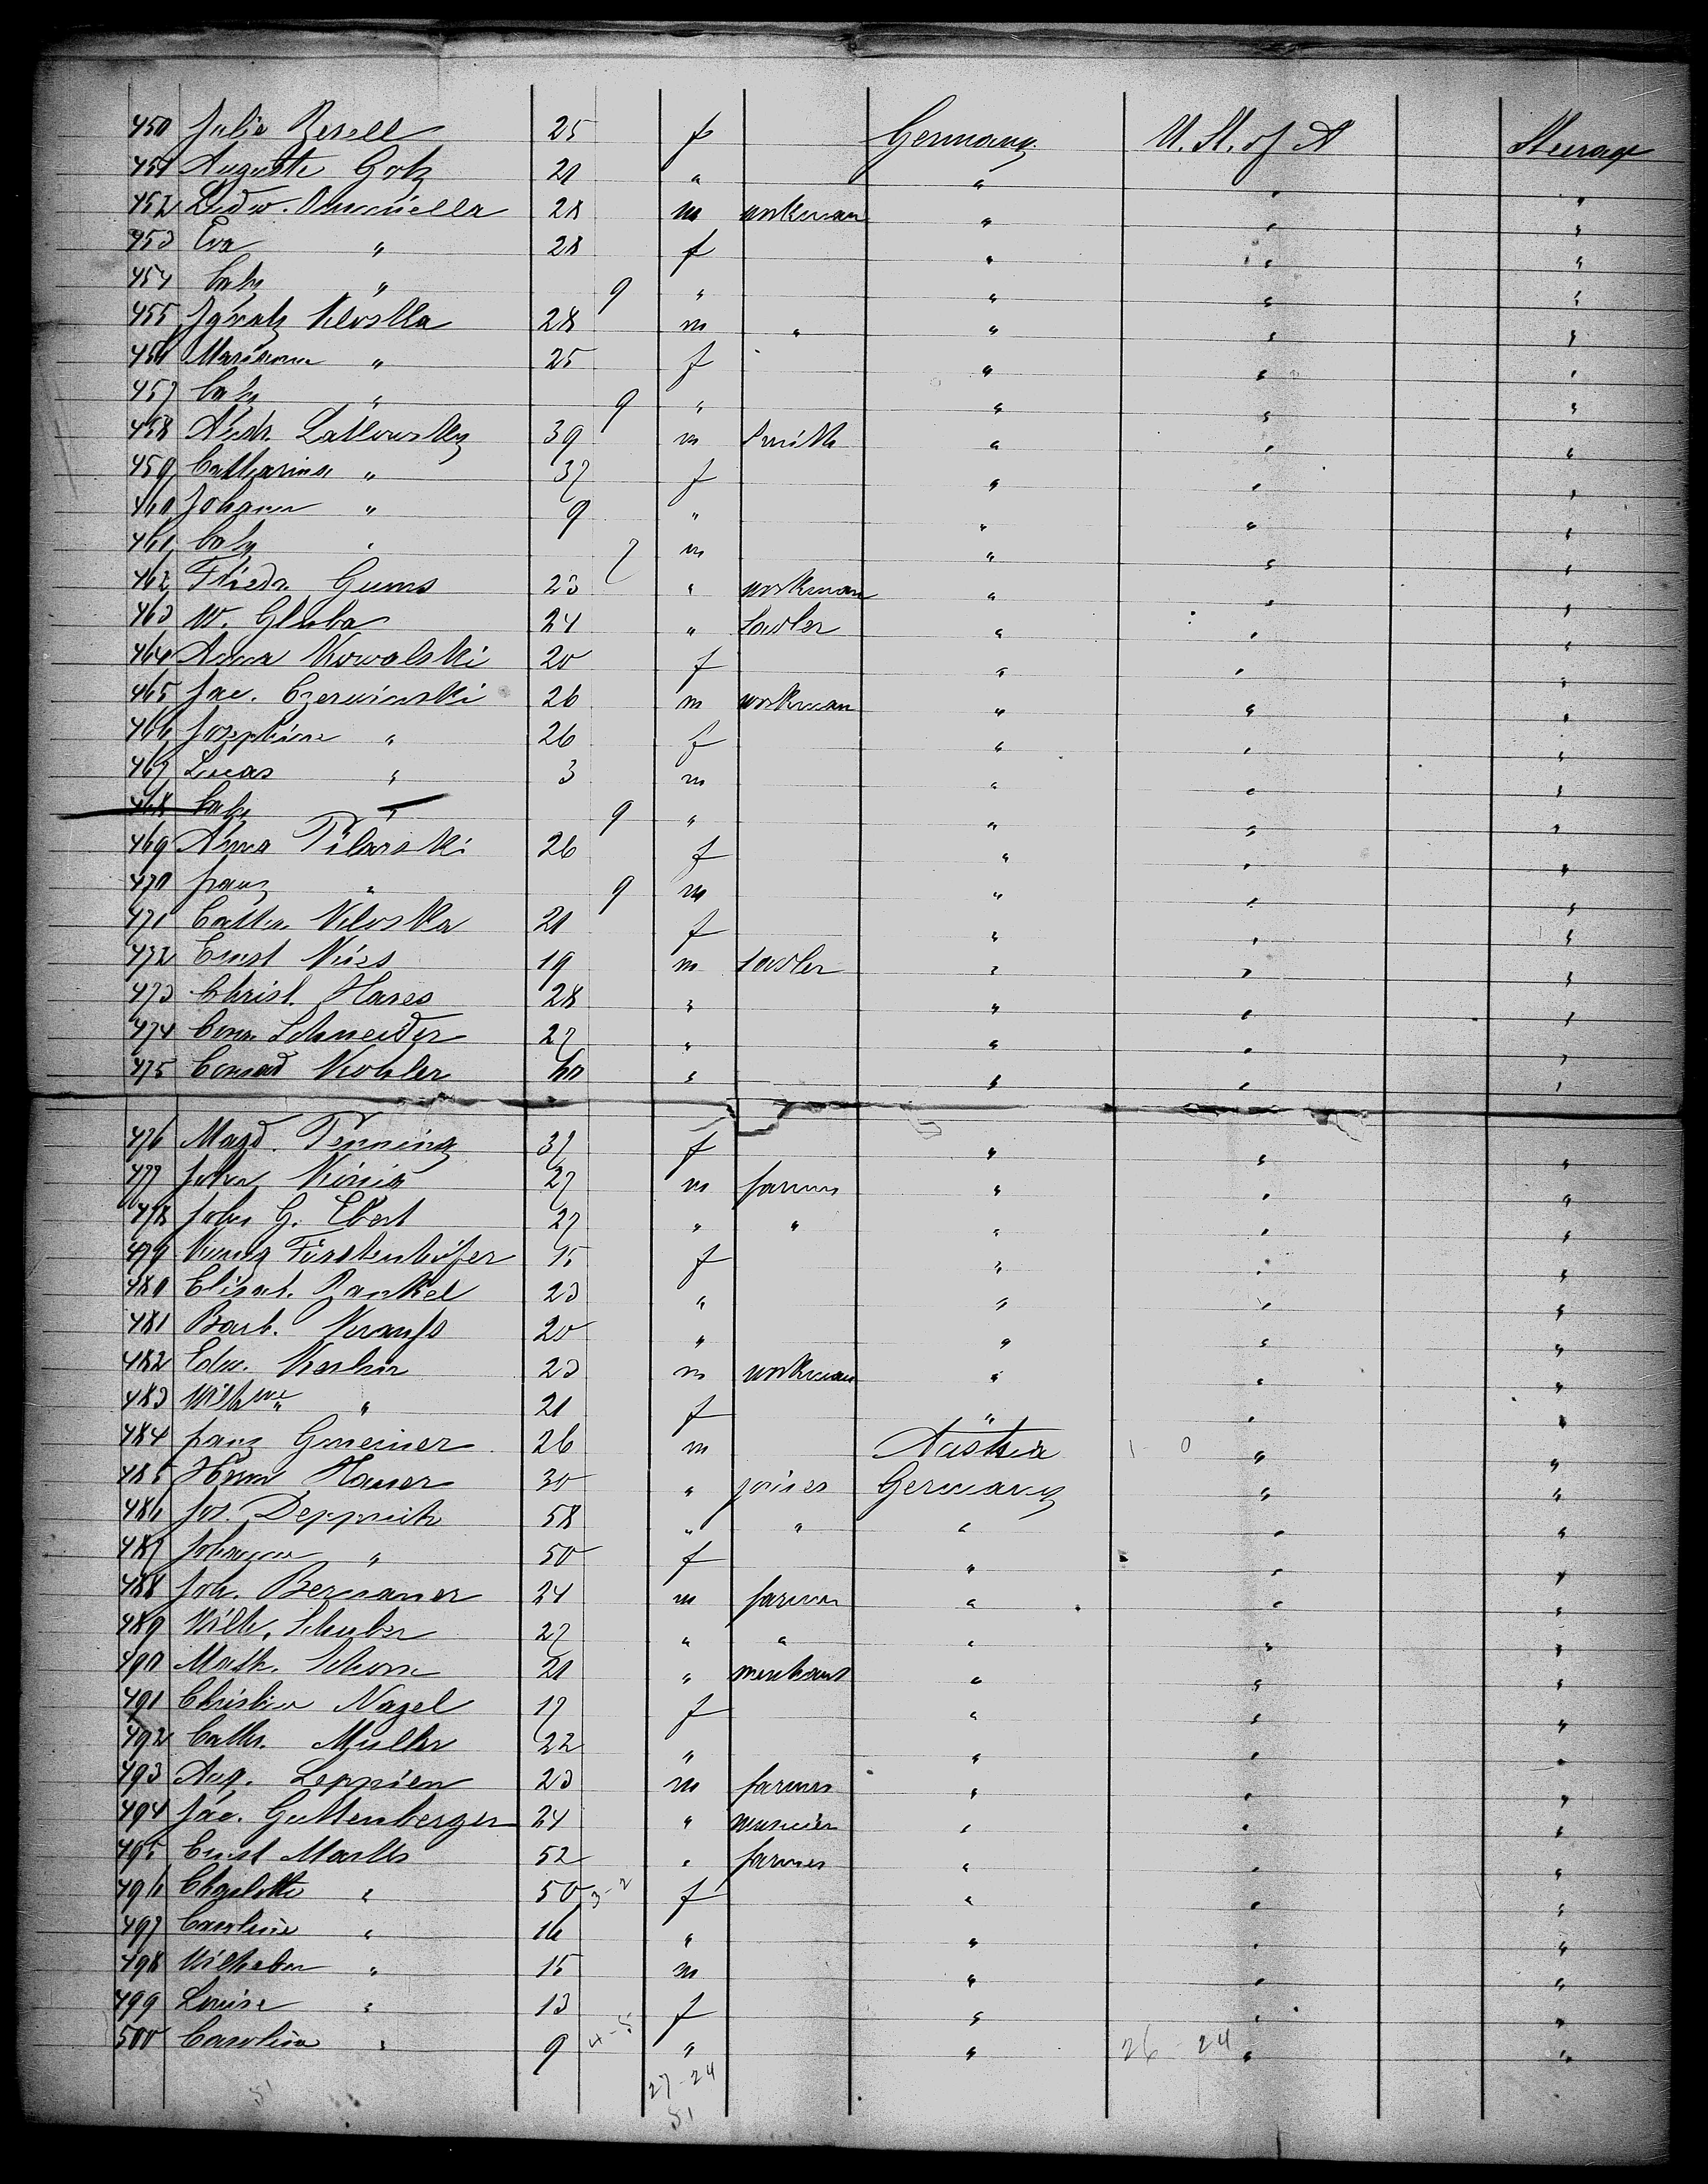 450 Julie Resell 25 f Germany U. St. of A Steerage
451 Auguste Gotz 21 " " " "
452 Ludw. 28 m workman " " "
453 Eva " 28 f " " "
454 baby " 9 " " " "
455 Ignatz Kloska 28 m " " " "
456 Marianna " 25 f " " "
457 baby " 9 " " " "
458 Andr. Latkowsky 39 m Smith " " "
459 Catharina " 37 f " " "
460 Johann " 9 " " " "
461 baby " 7 m " " "
462 Friedr. Gums 23 " workman " " "
463 W. Gluba 24 " sadler " " "
464 Anna Kowalski 20 f " " "
465 Jac. Czerwinski 26 m workman " " "
466 Josephine " 26 f " " "
467 Lucas " 3 m " " "
468 baby " 9 " " " "
469 Anna Pilarski 26 f " " "
470 Franz " 9 m " " "
471 Cath. Kloska 21 f " " "
472 Ernst Nies 19 m sadler " " "
473 Christ. Hares 28 " " " "
474 Conr. Schneider 27 " " " "
475 Conrad Kohler 60 " " " "
476 Magd. Penning 37 f " " "
477 John König 27 m farmer " " "
478 John G. Ebert 27 " " " " "
479 Kunig Fürstenhöfer 15 f " " "
480 Elisab. Rankel 23 " " " "
481 Barb. Kraufs 20 " " " "
482 Edw. 23 m workman " " "
483 Wilhne " 21 f " " "
484 Franz Gmeiner 26 m Austria 1 - 0 " "
485 Herm Hauer 30 " joiner Germany " "
486 Jos. Deppisch 58 " " " " "
487 Johanna " 50 f " " "
488 Joh. Bernauer 24 m farmer " " "
489 Wilh. Schuber 27 " " " " "
490 Math. Schorn 21 " merchant " " "
491 Christine Nagel 17 f " " "
492 Cath. Muller 22 " " " "
493 Aug. Leppien 23 m farmer " " "
494 Jac. Guttenberger 24 " " " "
495 Ernst Marks 52 " farmer " " "
496 Charlotte " 50 3-2 f " " "
497 Caroline " 16 " " " "
498 Wilhelm " 15 m " " "
499 Louise " 13 f " " "
500 Carolina " 9 4-5 " " 26 - 24 " "
27 - 24
51 51